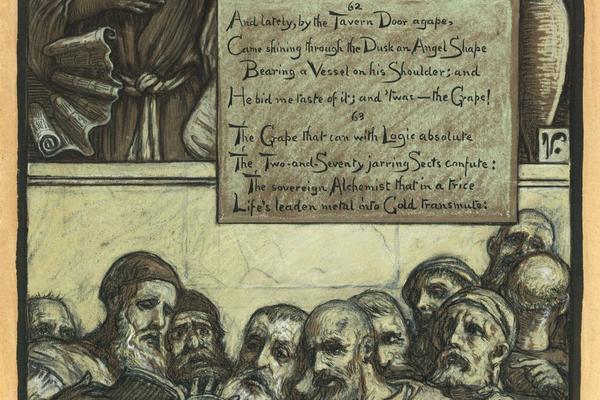 62
And lately, by the Tavern Door agape,
Came shining through the Dusk an Angel Shape
Bearing a Vessel on his Shoulder; and
He bid me taste of it; and 'twas — the Grape!
63
The Grape that can with Logic absolute
The Two-and-Seventy jarring Sects confute:
The sovereign Alchemist that in a trice
Life's leaden metal into Gold transmute: